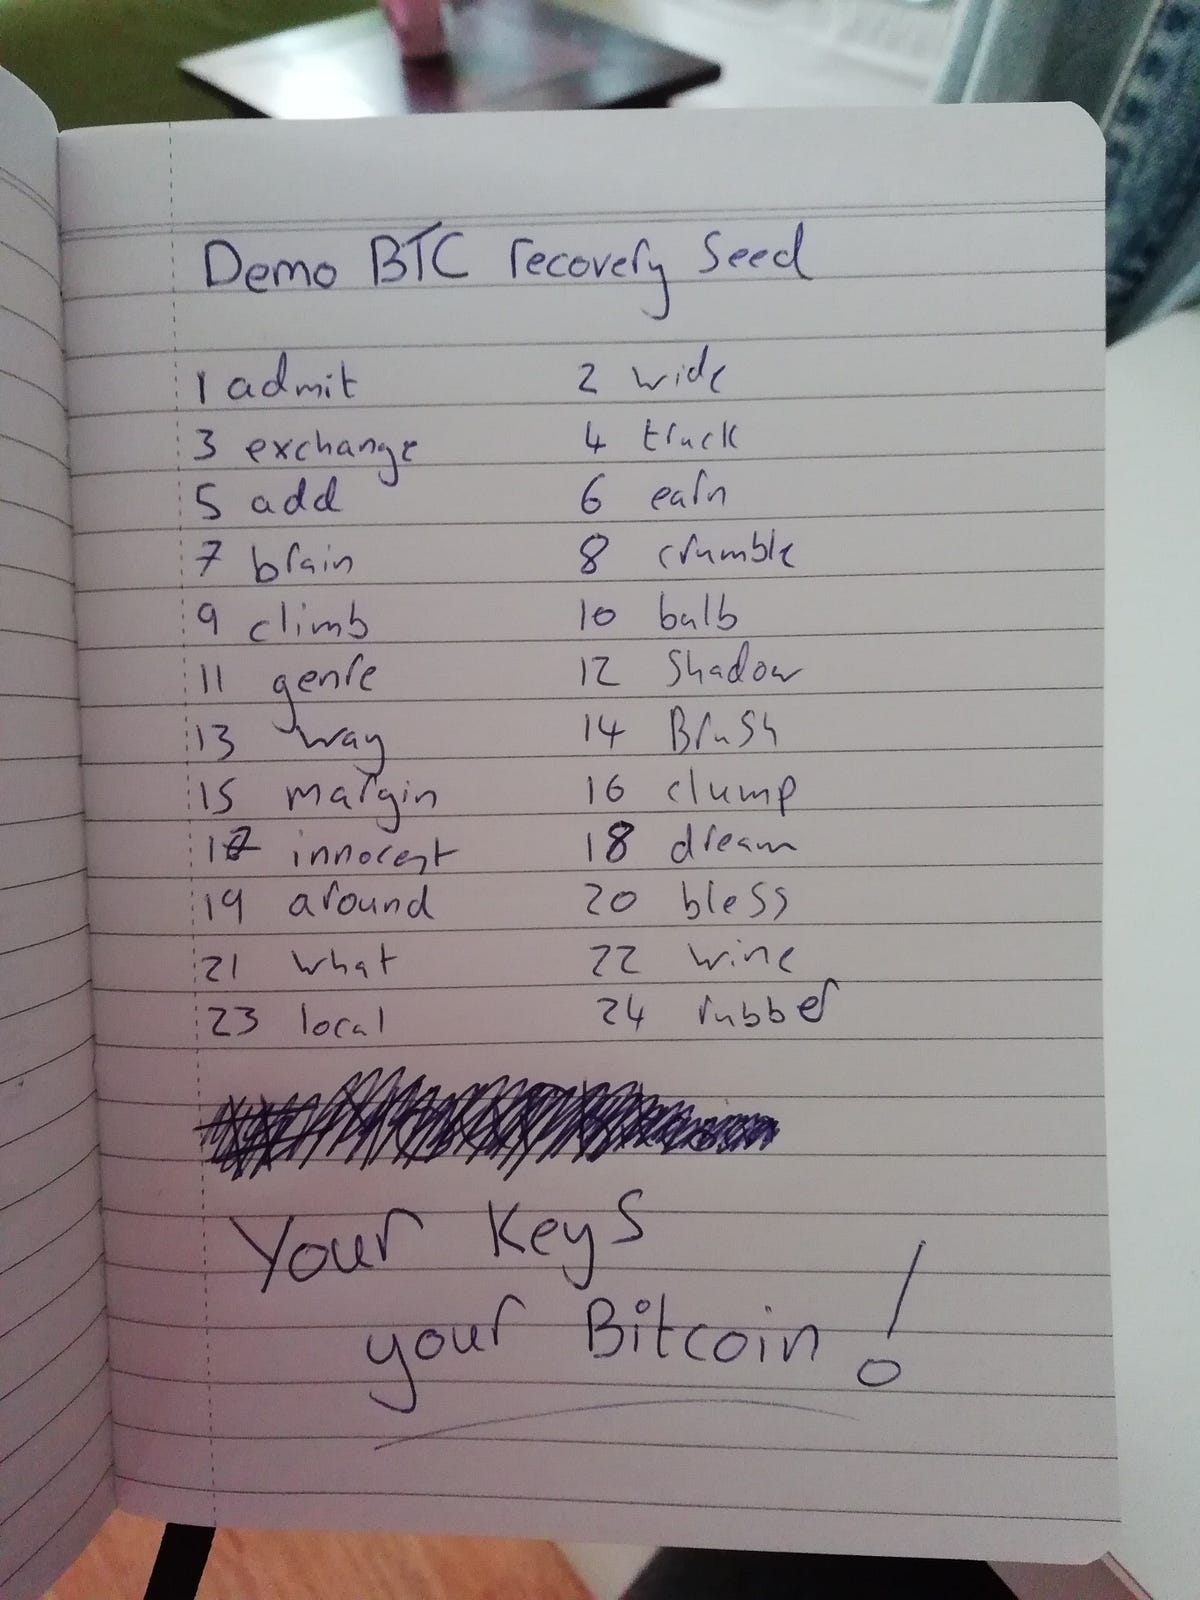 Demo BTC recovery Seed
1 admit 2 wide
3 exchange 4 truck
5 add 6 earn
7 brain 8 crumble
9 climb 10 bulb
11 genre 12 Shadow
13 way 14 Brush
15 margin 16 clump
17 innocent 18 dream
19 around 20 bless
21 what 22 wine
23 local 24 rubber
Your Keys
your Bitcoin!